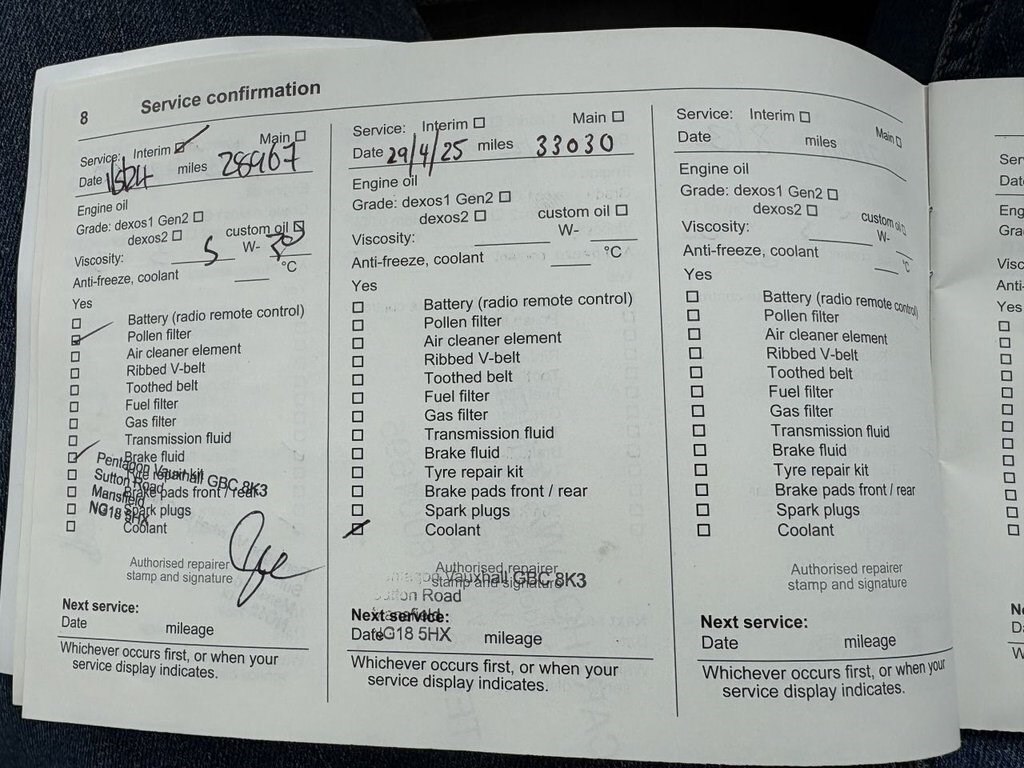 8 Service confirmation
Service: Interim Main
Date miles 28967
Engine oil
Grade: dexos1 Gen2
dexos2 custom oil
Viscosity: 5 W-
Anti-freeze, coolant °C
Yes
Battery (radio remote control)
Pollen filter
Air cleaner element
Ribbed V-belt
Toothed belt
Fuel filter
Gas filter
Transmission fluid
Brake fluid
Tyre repair kit
Brake pads front / rear
Spark plugs
Coolant
Pentagon Vauxhall GBC 8K3
Sutton Road
Mansfield
NG18 5HX
Authorised repairer
stamp and signature
Next service:
Date mileage
Whichever occurs first, or when your
service display indicates.
Service: Interim Main
Date 29/4/25 miles 33030
Engine oil
Grade: dexos1 Gen2
dexos2 custom oil
Viscosity: W-
Anti-freeze, coolant °C
Yes
Battery (radio remote control)
Pollen filter
Air cleaner element
Ribbed V-belt
Toothed belt
Fuel filter
Gas filter
Transmission fluid
Brake fluid
Tyre repair kit
Brake pads front / rear
Spark plugs
Coolant
Authorised repairer
stamp and signature
Vauxhall GBC 8K3
Road
NG18 5HX
Next service:
Date mileage
Whichever occurs first, or when your
service display indicates.
Service: Interim Main
Date miles
Engine oil
Grade: dexos1 Gen2
dexos2 custom oil
Viscosity: W-
Anti-freeze, coolant °C
Yes
Battery (radio remote control)
Pollen filter
Air cleaner element
Ribbed V-belt
Toothed belt
Fuel filter
Gas filter
Transmission fluid
Brake fluid
Tyre repair kit
Brake pads front / rear
Spark plugs
Coolant
Authorised repairer
stamp and signature
Next service:
Date mileage
Whichever occurs first, or when your
service display indicates.
Yes